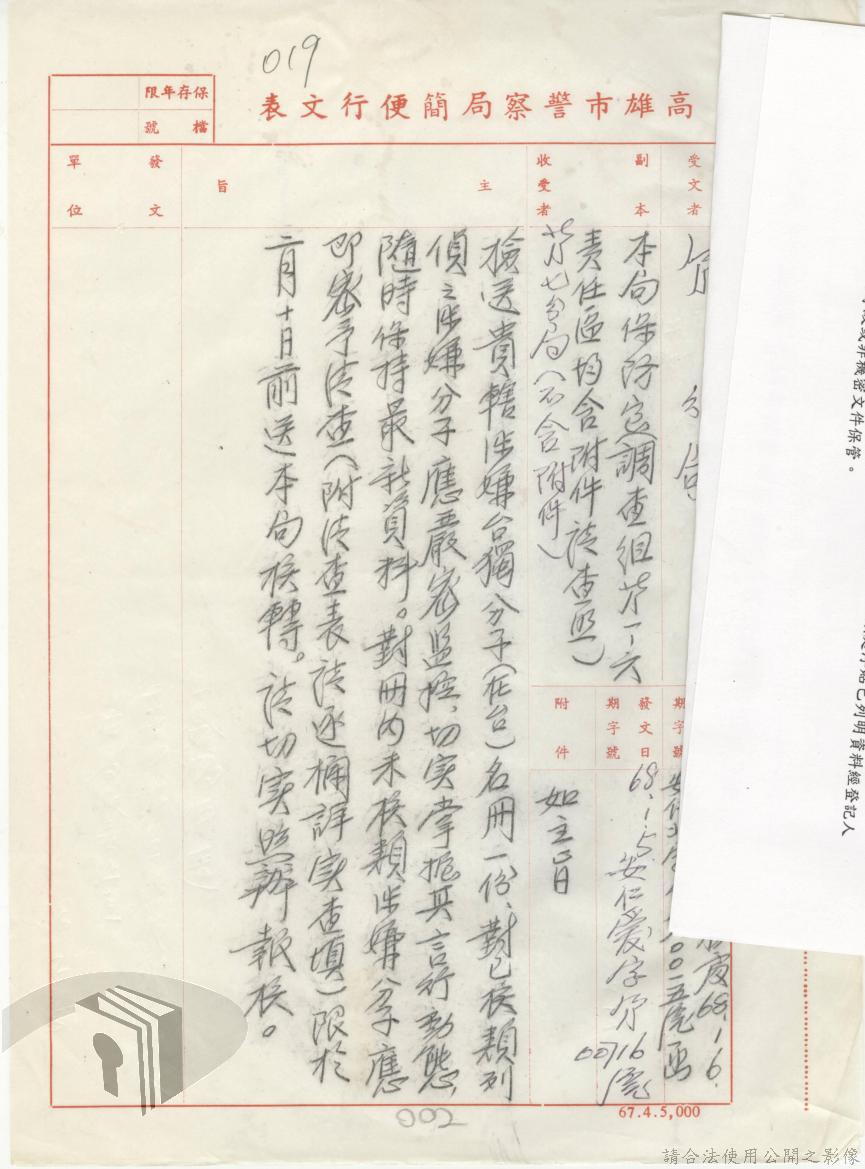 019
高雄市警察局簡便行文表
保存年限
檔號
受文者
分局
副本
收受者
本局保防室(調查組第一六
責任區均含附件請查照)
第七分局(不含附件)
發文日
期字號
68.1.5安仁愛字第
00716號
附件
如主旨
主旨
檢送貴轄涉嫌台獨分子(在台)名冊一份、對已核類列
偵之涉嫌分子應嚴密監控、切實掌握其言行動態、
隨時保持最新資料。對冊內未核類涉嫌分子應
即密予清查(附清查表請逐欄詳實查填)限於
二月十日前送本局核轉。請切實照辦報核。
發文
單位
67.4.5,000
002
或非機密文件保管。
已列明資料經登記人
68.1.6.
請合法使用公開之影像